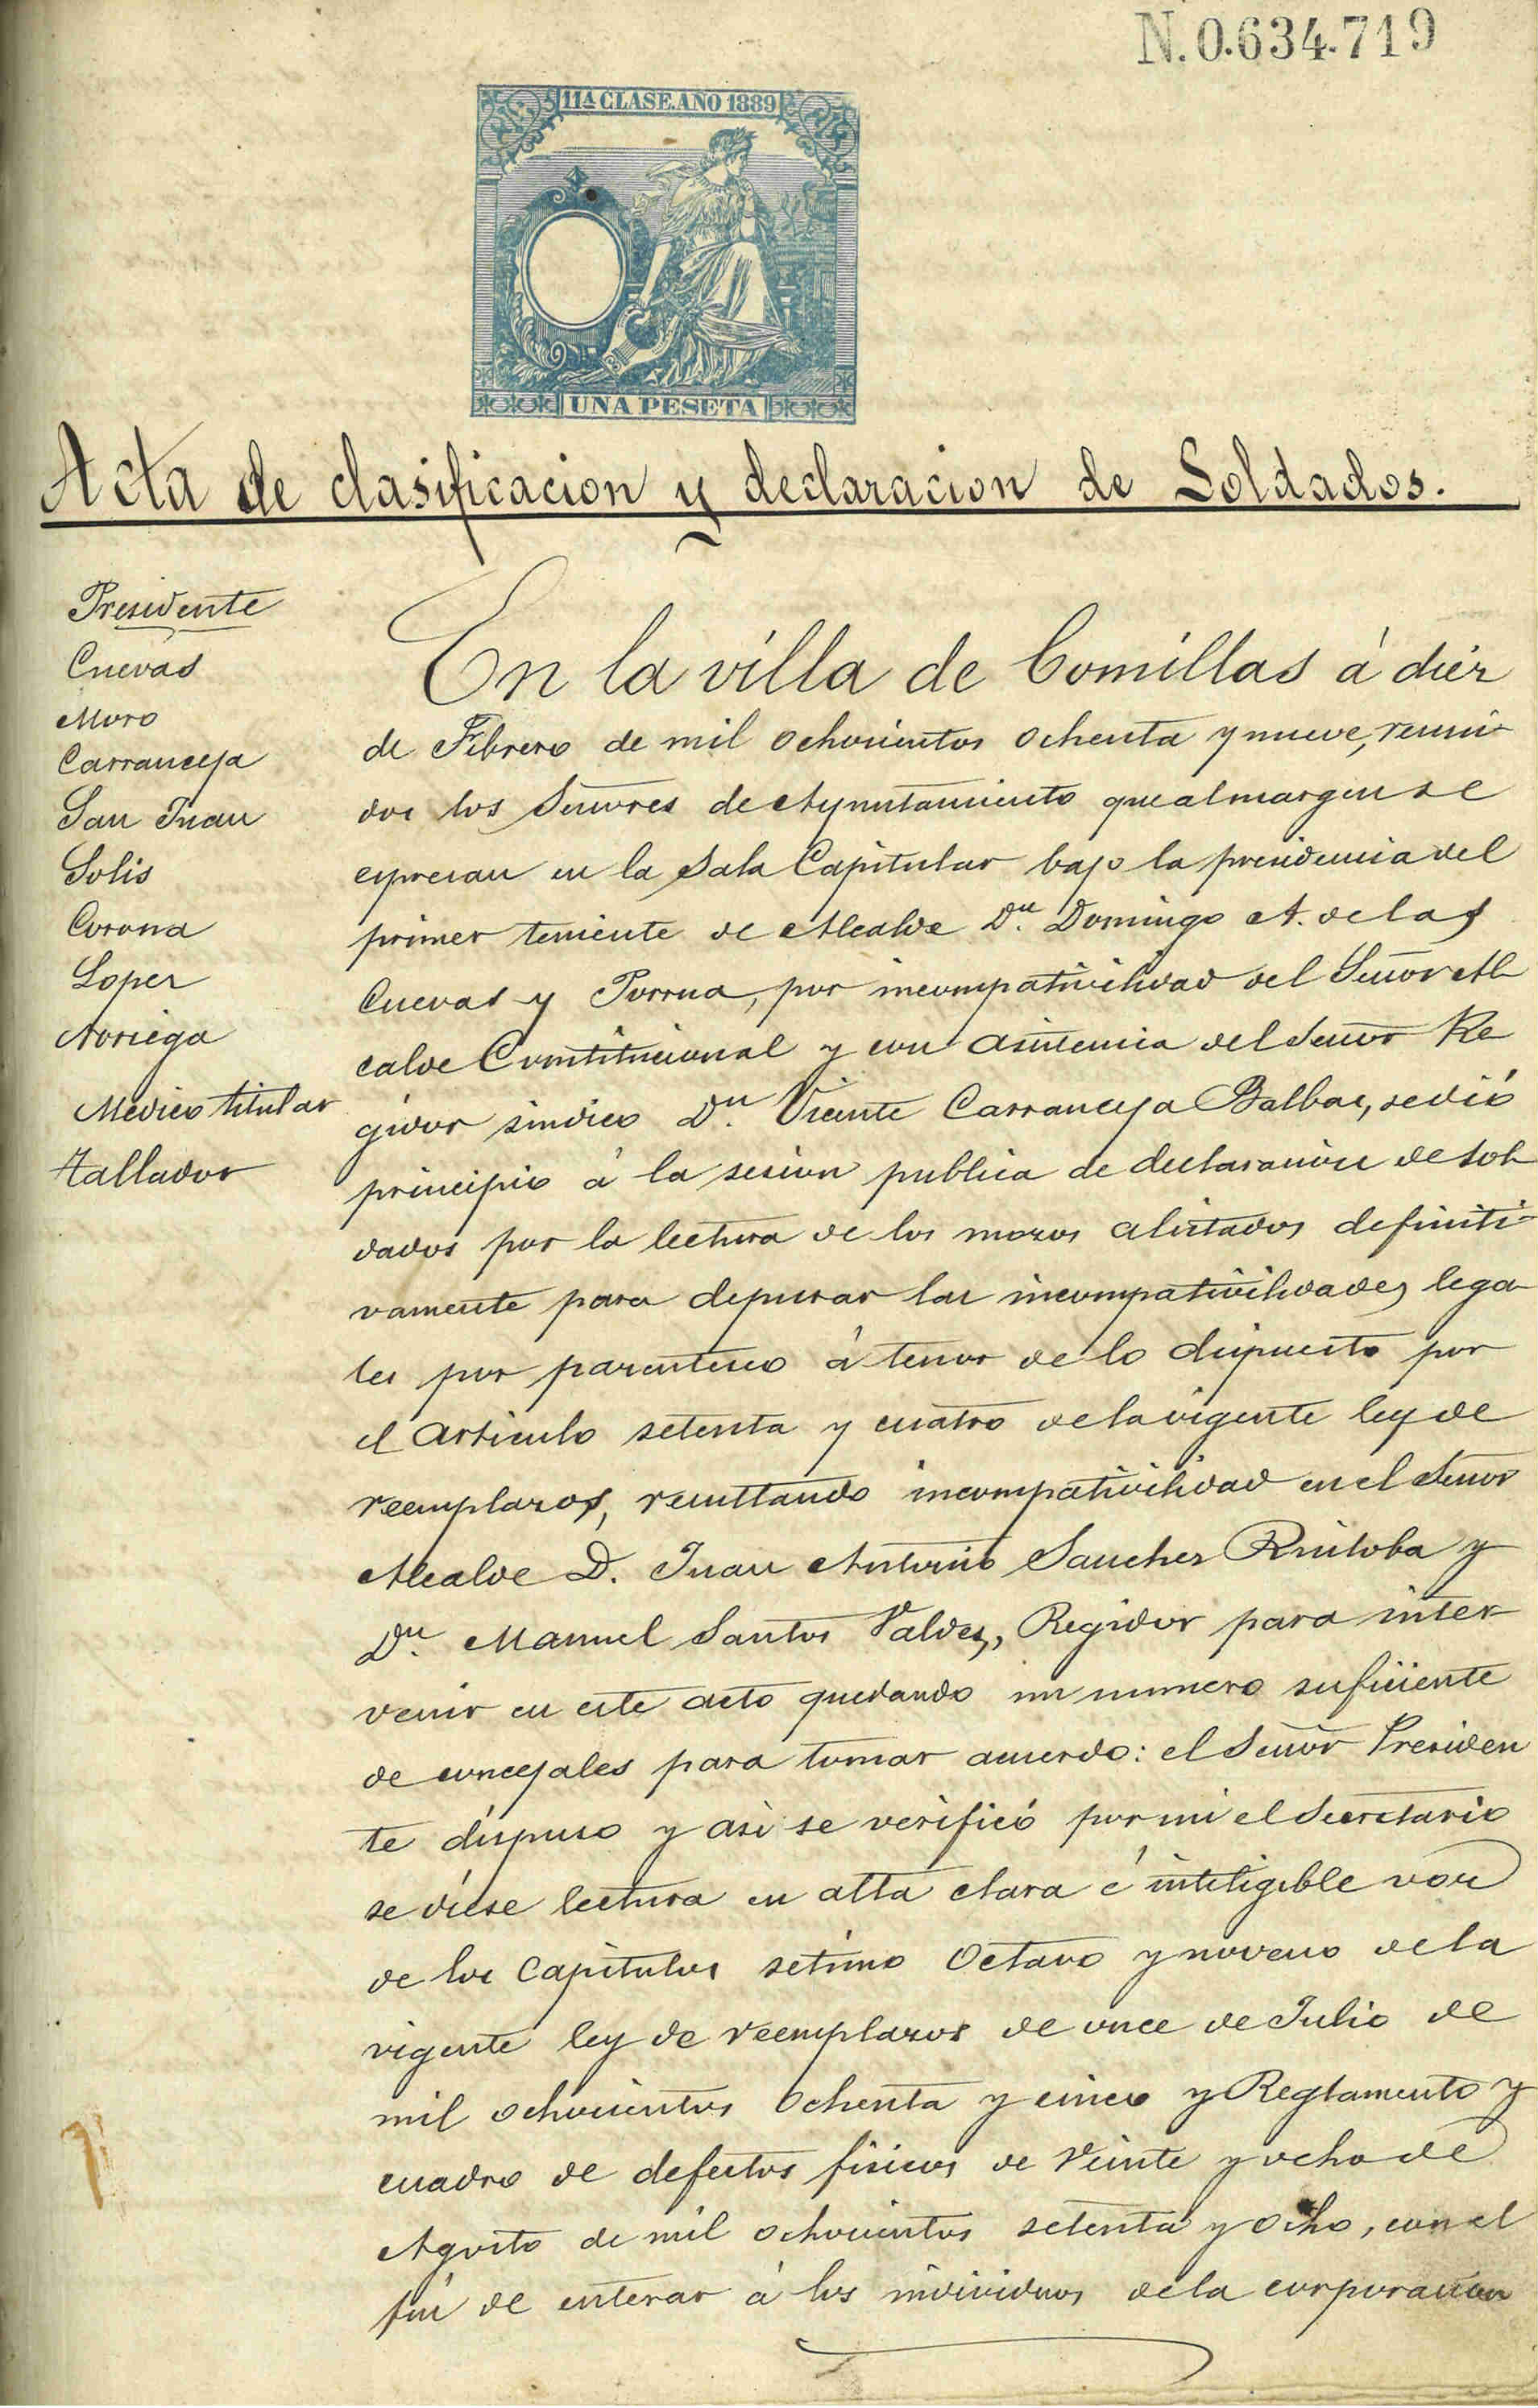 N.0.634.719
11ª CLASE. AÑO 1889
UNA PESETA
Acta de clasificacion y declaracion de Soldados.
Presidente
Cuevas
Moro
Carranceja
San Juan
Solis
Corona
Lopez
Noriega
Médico titular
Tallador
En la villa de Comillas á diéz
de Febrero de mil ochocientos ochenta y nueve, reuni-
dos los Señores de Ayuntamiento que al margen se
espresan en la Sala Capitular bajo la presidencia del
primer teniente de Alcalde Dn. Domingo A. de las
Cuevas y Porrua, por incompativilidad del Señor Al
calde Constitucional y con asistencia del Señor Re
gidor sindico Dn. Vicente Carranceja Balbas, se dió
principio á la sesion publica de declaracion de sol
dados por la lectura de los mozos alistados definiti-
vamente para depurar las incompativilidades lega
les por parentesco á tenor de lo dispuesto por
el articulo setenta y cuatro de la vigente ley de
reemplazos, resultando incompativilidad en el Señor
Alcalde D. Juan Antonio Sanchez Ruiloba y
Dn. Manuel Santos Valdes, Regidor para inter-
venir en este acto quedando un numero suficiente
de concejales para tomar acuerdo: el Señor Presiden
te dispuso y asi se verificó por mi el Secretario
se diese lectura en alta clara é inteligible voz
de los Capitulos setimo Octavo y noveno de la
vigente ley de reemplazos de once de Julio de
mil ochocientos ochenta y cinco y Reglamento y
cuadro de defectos fisicos de Veinte y ocho de
Agosto de mil ochocientos setenta y ocho, con el
fin de enterar á los individuos de la corporacion